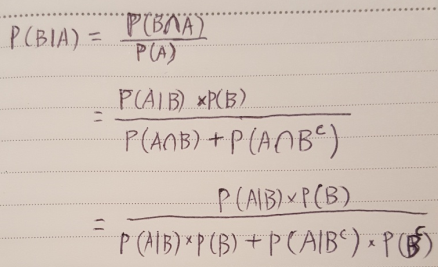 P(B|A) = P(B∩A) / P(A)
= P(A|B) × P(B) / P(A∩B) + P(A∩Bᶜ)
= P(A|B) × P(B) / P(A|B) × P(B) + P(A|Bᶜ) × P(Bᶜ)